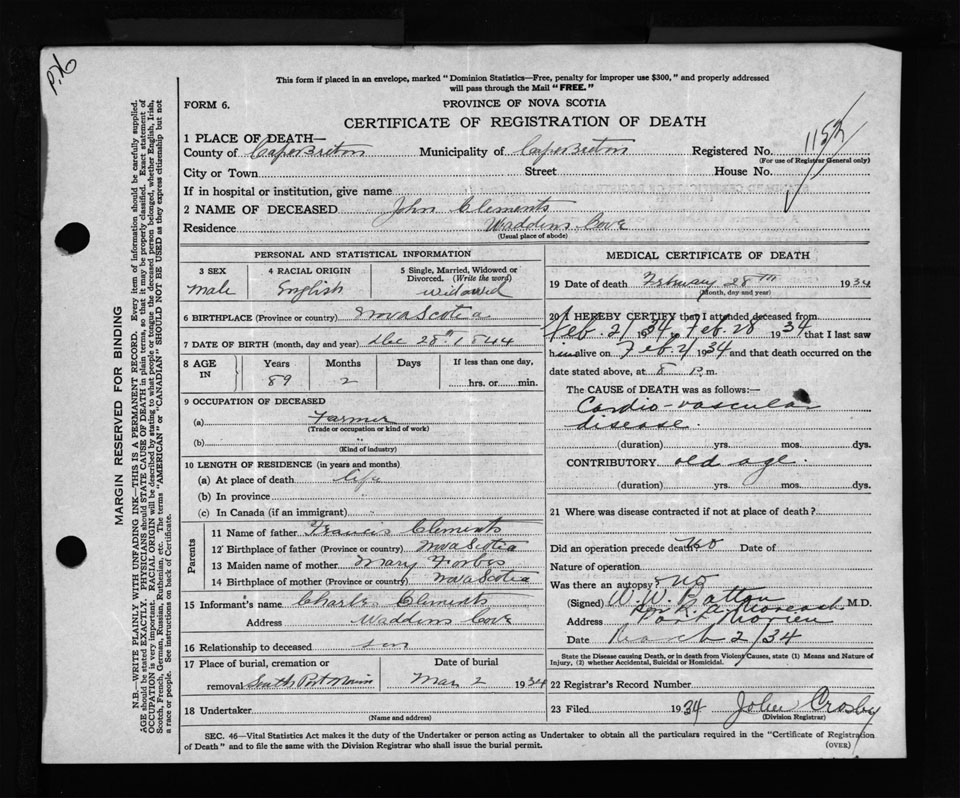 P.N.
This form if placed in an envelope, marked "Dominion Statistics—Free, penalty for improper use $300," and properly addressed
will pass through the Mail "FREE."
FORM 6.
PROVINCE OF NOVA SCOTIA
CERTIFICATE OF REGISTRATION OF DEATH
1 PLACE OF DEATH—
County of Cape Breton Municipality of Cape Breton Registered No.
(For use of Registrar General only)
City or Town Street House No.
If in hospital or institution, give name
2 NAME OF DECEASED John Clements
Residence Waddens Cove
(Usual place of abode)
PERSONAL AND STATISTICAL INFORMATION
3 SEX 4 RACIAL ORIGIN 5 Single, Married, Widowed or
Divorced. (Write the word)
Male English widowed
6 BIRTHPLACE (Province or country) Nova Scotia
7 DATE OF BIRTH (month, day and year) Dec 28th 1844
8 AGE IN Years Months Days If less than one day,
89 2 hrs. or min.
9 OCCUPATION OF DECEASED
(a) Farmer
(Trade or occupation or kind of work)
(b)
(Kind of industry)
10 LENGTH OF RESIDENCE (in years and months)
(a) At place of death life
(b) In province
(c) In Canada (if an immigrant)
Parents
11 Name of father Francis Clements
12 Birthplace of father (Province or country) Nova Scotia
13 Maiden name of mother Mary Forbes
14 Birthplace of mother (Province or country) Nova Scotia
15 Informant's name Charles Clements
Address Waddens Cove
16 Relationship to deceased son
17 Place of burial, cremation or Date of burial
removal South Port Morien Mar 2 1934
18 Undertaker
(Name and address)
MEDICAL CERTIFICATE OF DEATH
19 Date of death February 28TH 1934
(Month, day and year)
20 I HEREBY CERTIFY that I attended deceased from
Feb. 21 1934 to Feb 28 1934 that I last saw
him alive on Feb 21 1934 and that death occurred on the
date stated above, at 8 P.m.
The CAUSE of DEATH was as follows:—
Cardio-vascular
disease.
(duration) yrs. mos. dys.
CONTRIBUTORY old age.
(duration) yrs. mos. dys.
21 Where was disease contracted if not at place of death?
Did an operation precede death no Date of
Nature of operation
Was there an autopsy? no
(Signed) W. W. Patton M.D.
Address Port Morien
Date March 2/34
State the Disease causing Death, or in death from Violent Causes, state (1) Means and Nature of
Injury, (2) whether Accidental, Suicidal or Homicidal.
22 Registrar's Record Number
23 Filed 1934 John Crosby
(Division Registrar)
SEC. 46—Vital Statistics Act makes it the duty of the Undertaker or person acting as Undertaker to obtain all the particulars required in the "Certificate of Registration
of Death" and to file the same with the Division Registrar who shall issue the burial permit.
(OVER)
MARGIN RESERVED FOR BINDING
N.B.—WRITE PLAINLY WITH UNFADING INK—THIS IS A PERMANENT RECORD. Every item of information should be carefully supplied.
AGE should be stated EXACTLY. PHYSICIANS should STATE CAUSE OF DEATH in plain terms, so that it may be properly classified. Exact statement of
OCCUPATION is very important. RACIAL ORIGIN will be described by stating to what people or tongue the deceased person belonged, whether English, Irish,
Scotch, French, German, Russian, Ruthenian, etc. The terms "AMERICAN" or "CANADIAN" SHOULD NOT BE USED as they express citizenship but not
a race or people. See instructions on back of Certificate.